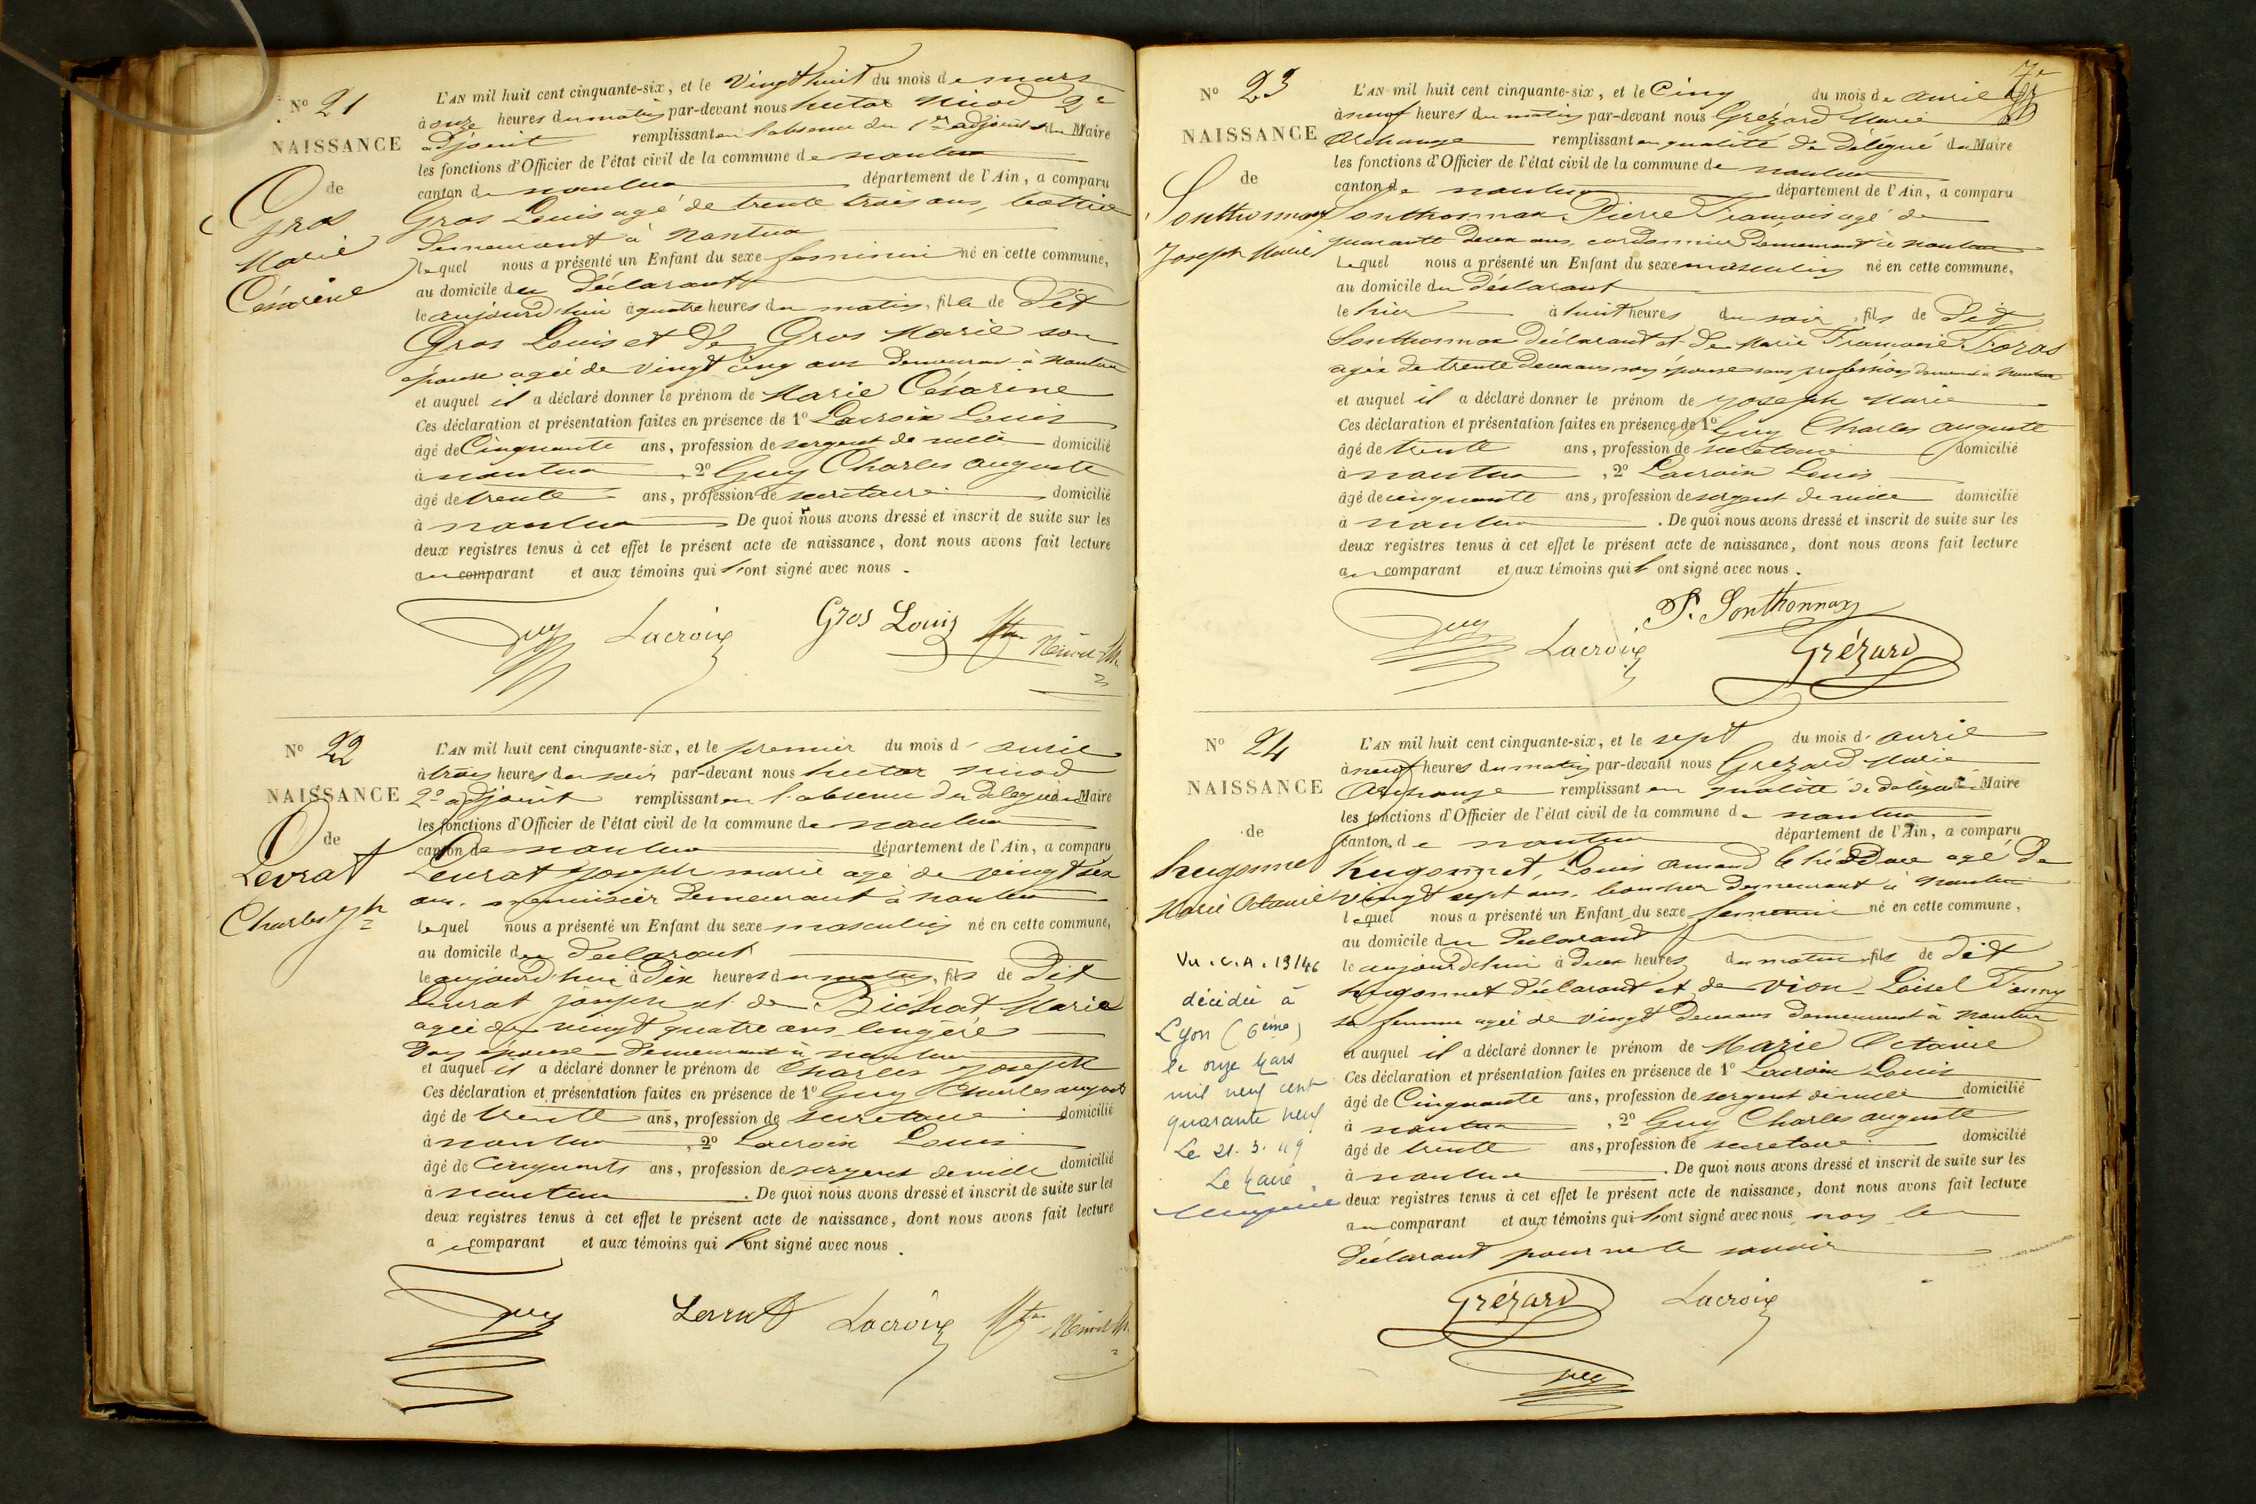 N° 21
NAISSANCE
de
Gros
Marie
Césarine
L'AN mil huit cent cinquante-six, et le vingt huit du mois de mars
à onze heures du matin par-devant nous hector Nicod 2e
adjoint remplissant en l'absence du 1er adjoint et du Maire
les fonctions d'Officier de l'état civil de la commune de nantua
canton de nantua département de l'Ain, a comparu
Gros Louis agé de trente trois ans,
demeurant à Nantua
lequel nous a présenté un Enfant du sexe feminin né en cette commune,
au domicile du déclarant
le aujourd'hui à quatre heures du matin, fille de dit
Gros Louis et de Gros Marie son
épouse agée de vingt cinq ans demeurant à Nantua
et auquel il a déclaré donner le prénom de Marie Césarine
Ces déclaration et présentation faites en présence de 1° Lacroix Louis
âgé de Cinquante ans, profession de sergent de ville domicilié
à nantua, 2° Guy Charles auguste
âgé de trente ans, profession de secretaire domicilié
à nantua De quoi nous avons dressé et inscrit de suite sur les
deux registres tenus à cet effet le présent acte de naissance, dont nous avons fait lecture
au comparant et aux témoins qui l'ont signé avec nous.
Guy Lacroix Gros Louis
N° 22
NAISSANCE
de
Levrat
Charles Jh
L'AN mil huit cent cinquante-six, et le premier du mois d'avril
à trois heures du soir par-devant nous hector nicod
2e adjoint remplissant en l'absence du délégué du Maire
les fonctions d'Officier de l'état civil de la commune de nantua
canton de nantua département de l'Ain, a comparu
Levrat Joseph marie agé de vingt six
ans, menuisier demeurant à nantua
lequel nous a présenté un Enfant du sexe masculin né en cette commune,
au domicile du déclarant
le aujourd'hui à dix heures du matin, fils de dit
Levrat joseph et de Bichat Marie
agée de vingt quatre ans lingère
son épouse demeurant à nantua
et auquel il a déclaré donner le prénom de Charles Joseph
Ces déclaration et présentation faites en présence de 1° Guy Charles auguste
âgé de trente ans, profession de secretaire domicilié
à nantua, 2° Lacroix Louis
âgé de Cinquante ans, profession de sergent de ville domicilié
à nantua. De quoi nous avons dressé et inscrit de suite sur les
deux registres tenus à cet effet le présent acte de naissance, dont nous avons fait lecture
au comparant et aux témoins qui l'ont signé avec nous.
Guy Levrat Lacroix
N° 23
NAISSANCE
de
Sonthonnax
Joseph Marie
L'AN mil huit cent cinquante-six, et le Cinq du mois de avril
à neuf heures du matin par-devant nous Grézard Marie
Archange remplissant en qualité de Délégué du Maire
les fonctions d'Officier de l'état civil de la commune de nantua
canton de nantua département de l'Ain, a comparu
Sonthonnax Pierre François agé de
quarante deux ans, cordonnier Demeurant à nantua
Lequel nous a présenté un Enfant du sexe masculin né en cette commune,
au domicile du déclarant
le hier à huit heures du soir, fils de dit
Sonthonnax déclarant et de Marie Françoise Foras
agée de trente deux ans son épouse sans profession demeurant à Nantua
et auquel il a déclaré donner le prénom de joseph Marie
Ces déclaration et présentation faites en présence de 1° Guy Charles auguste
âgé de trente ans, profession de secretaire domicilié
à nantua, 2° Lacroix Louis
âgé de cinquante ans, profession de sergent de ville domicilié
à nantua. De quoi nous avons dressé et inscrit de suite sur les
deux registres tenus à cet effet le présent acte de naissance, dont nous avons fait lecture
au comparant et aux témoins qui l'ont signé avec nous.
P. Sonthonnax
Guy Lacroix Grézard
N° 24
NAISSANCE
de
hugonnet
Marie Octavie
L'AN mil huit cent cinquante-six, et le sept du mois d'avril
à neuf heures du matin par-devant nous Grezard Marie
Archange remplissant en qualité de délégué du Maire
les fonctions d'Officier de l'état civil de la commune de nantua
canton de nantua département de l'Ain, a comparu
hugonnet, Louis amand agé de
vingt sept ans, boucher demeurant à nantua
lequel nous a présenté un Enfant du sexe femenin né en cette commune,
au domicile du déclarant
le aujourd'hui à deux heures du matin fille de dit
hugonnet déclarant et de Vion Loisel Fanny
sa femme agée de vingt deux ans demeurant à nantua
et auquel il a déclaré donner le prénom de Marie Octavie
Ces déclaration et présentation faites en présence de 1° Lacroix Louis
âgé de Cinquante ans, profession de sergent de ville domicilié
à nantua, 2° Guy Charles auguste
âgé de trente ans, profession de secretaire domicilié
à nantua. De quoi nous avons dressé et inscrit de suite sur les
deux registres tenus à cet effet le présent acte de naissance, dont nous avons fait lecture
au comparant et aux témoins qui l'ont signé avec nous non le
déclarant pour ne le savoir
Grézard Lacroix
Guy
Vu. C.A. 13/46
décédée à
Lyon (6ème)
le onze Mars
mil neuf cent
quarante neuf
Le 21. 3. 49
Le Maire